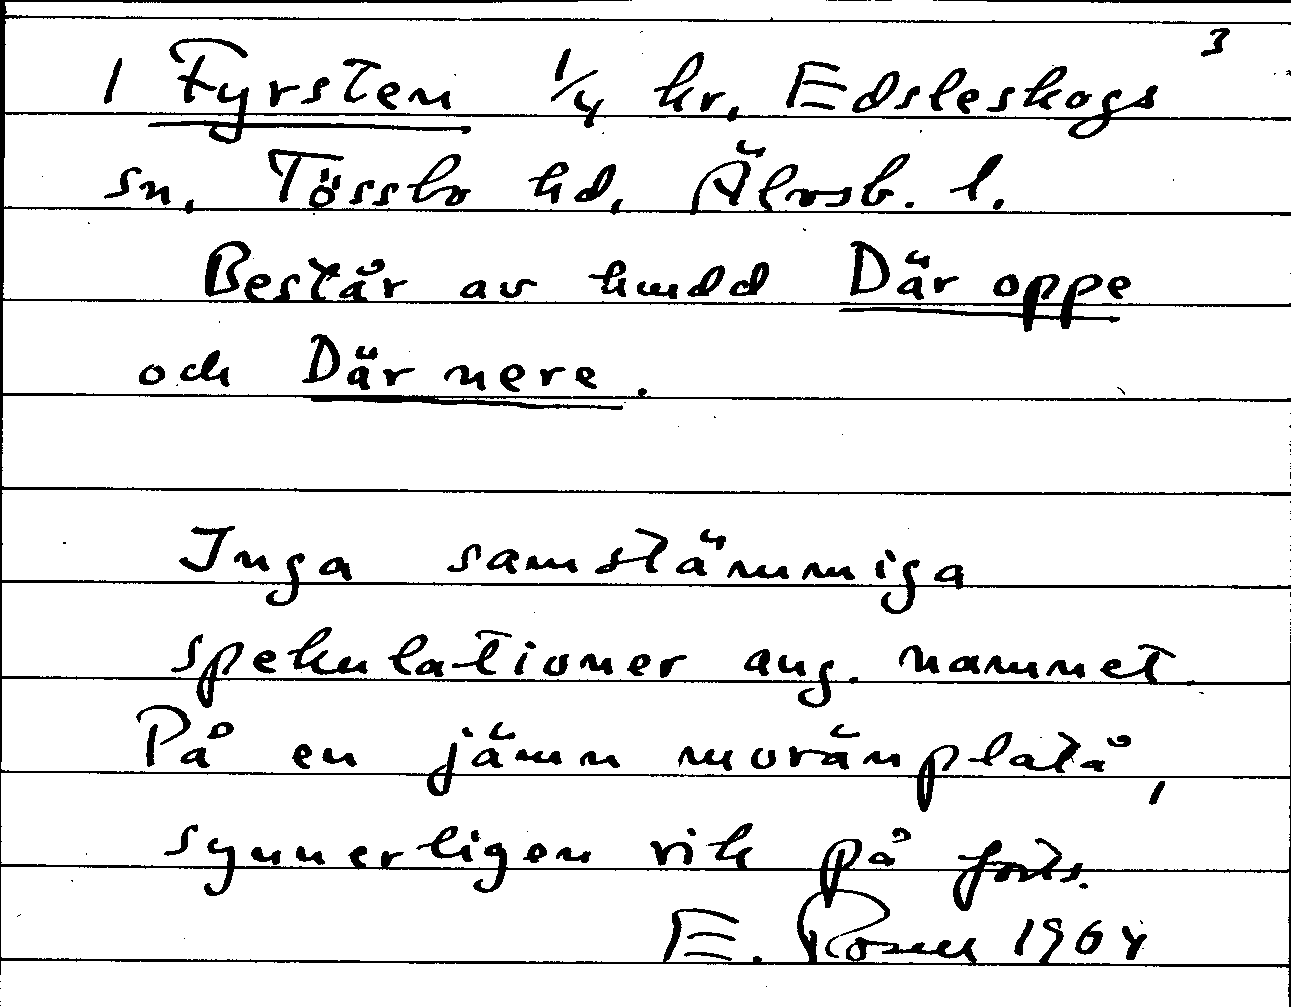 3
1 Fyrsten 1/4 kr, Edsleskogs
sn, Tössbo hd, Älvsb. l.
Består av hmdd Där oppe
och Där nere.
Inga samstämmiga
spekulationer ang. namnet.
På en jämn moränplatå,
synnerligen rik på forts.
E. Rosell 1964